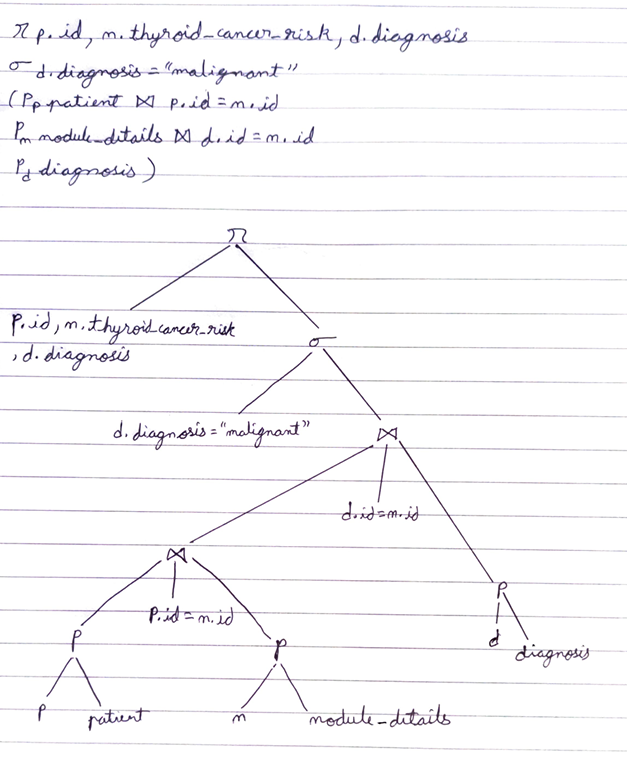 π p.id, n.thyroid_cancer_risk, d.diagnosis
σ d.diagnosis = "malignant"
(ρp patient ⋈ p.id = n.id
ρn nodule_ditails ⋈ d.id = n.id
ρd diagnosis)
π
p.id, n.thyroid_cancer_risk
, d.diagnosis
σ
d.diagnosis = "malignant"
⋈
d.id = n.id
⋈
p.id = n.id
ρ
d
diagnosis
ρ
ρ
p
patient
n
nodule_ditails